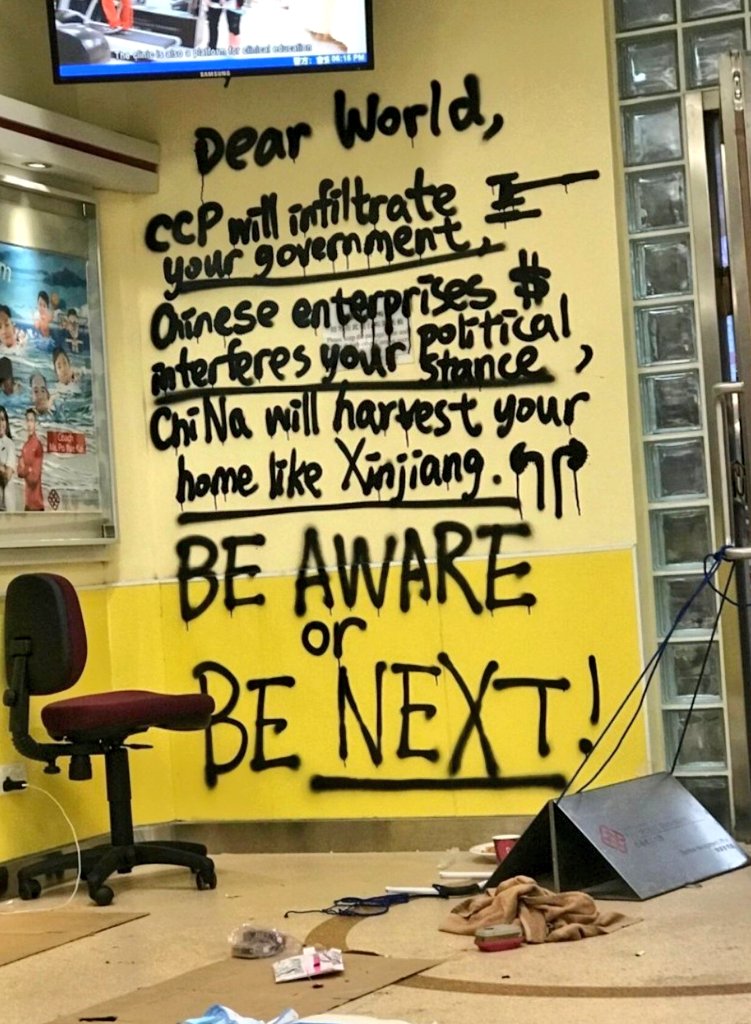 The clinic is also a platform for clinical education
06:15 PM
SAMSUNG
Dear World,
CCP will infiltrate
your government,
Chinese enterprises $
interferes your political
stance,
ChiNa will harvest your
home like Xinjiang.
BE AWARE
or
BE NEXT!
Coach